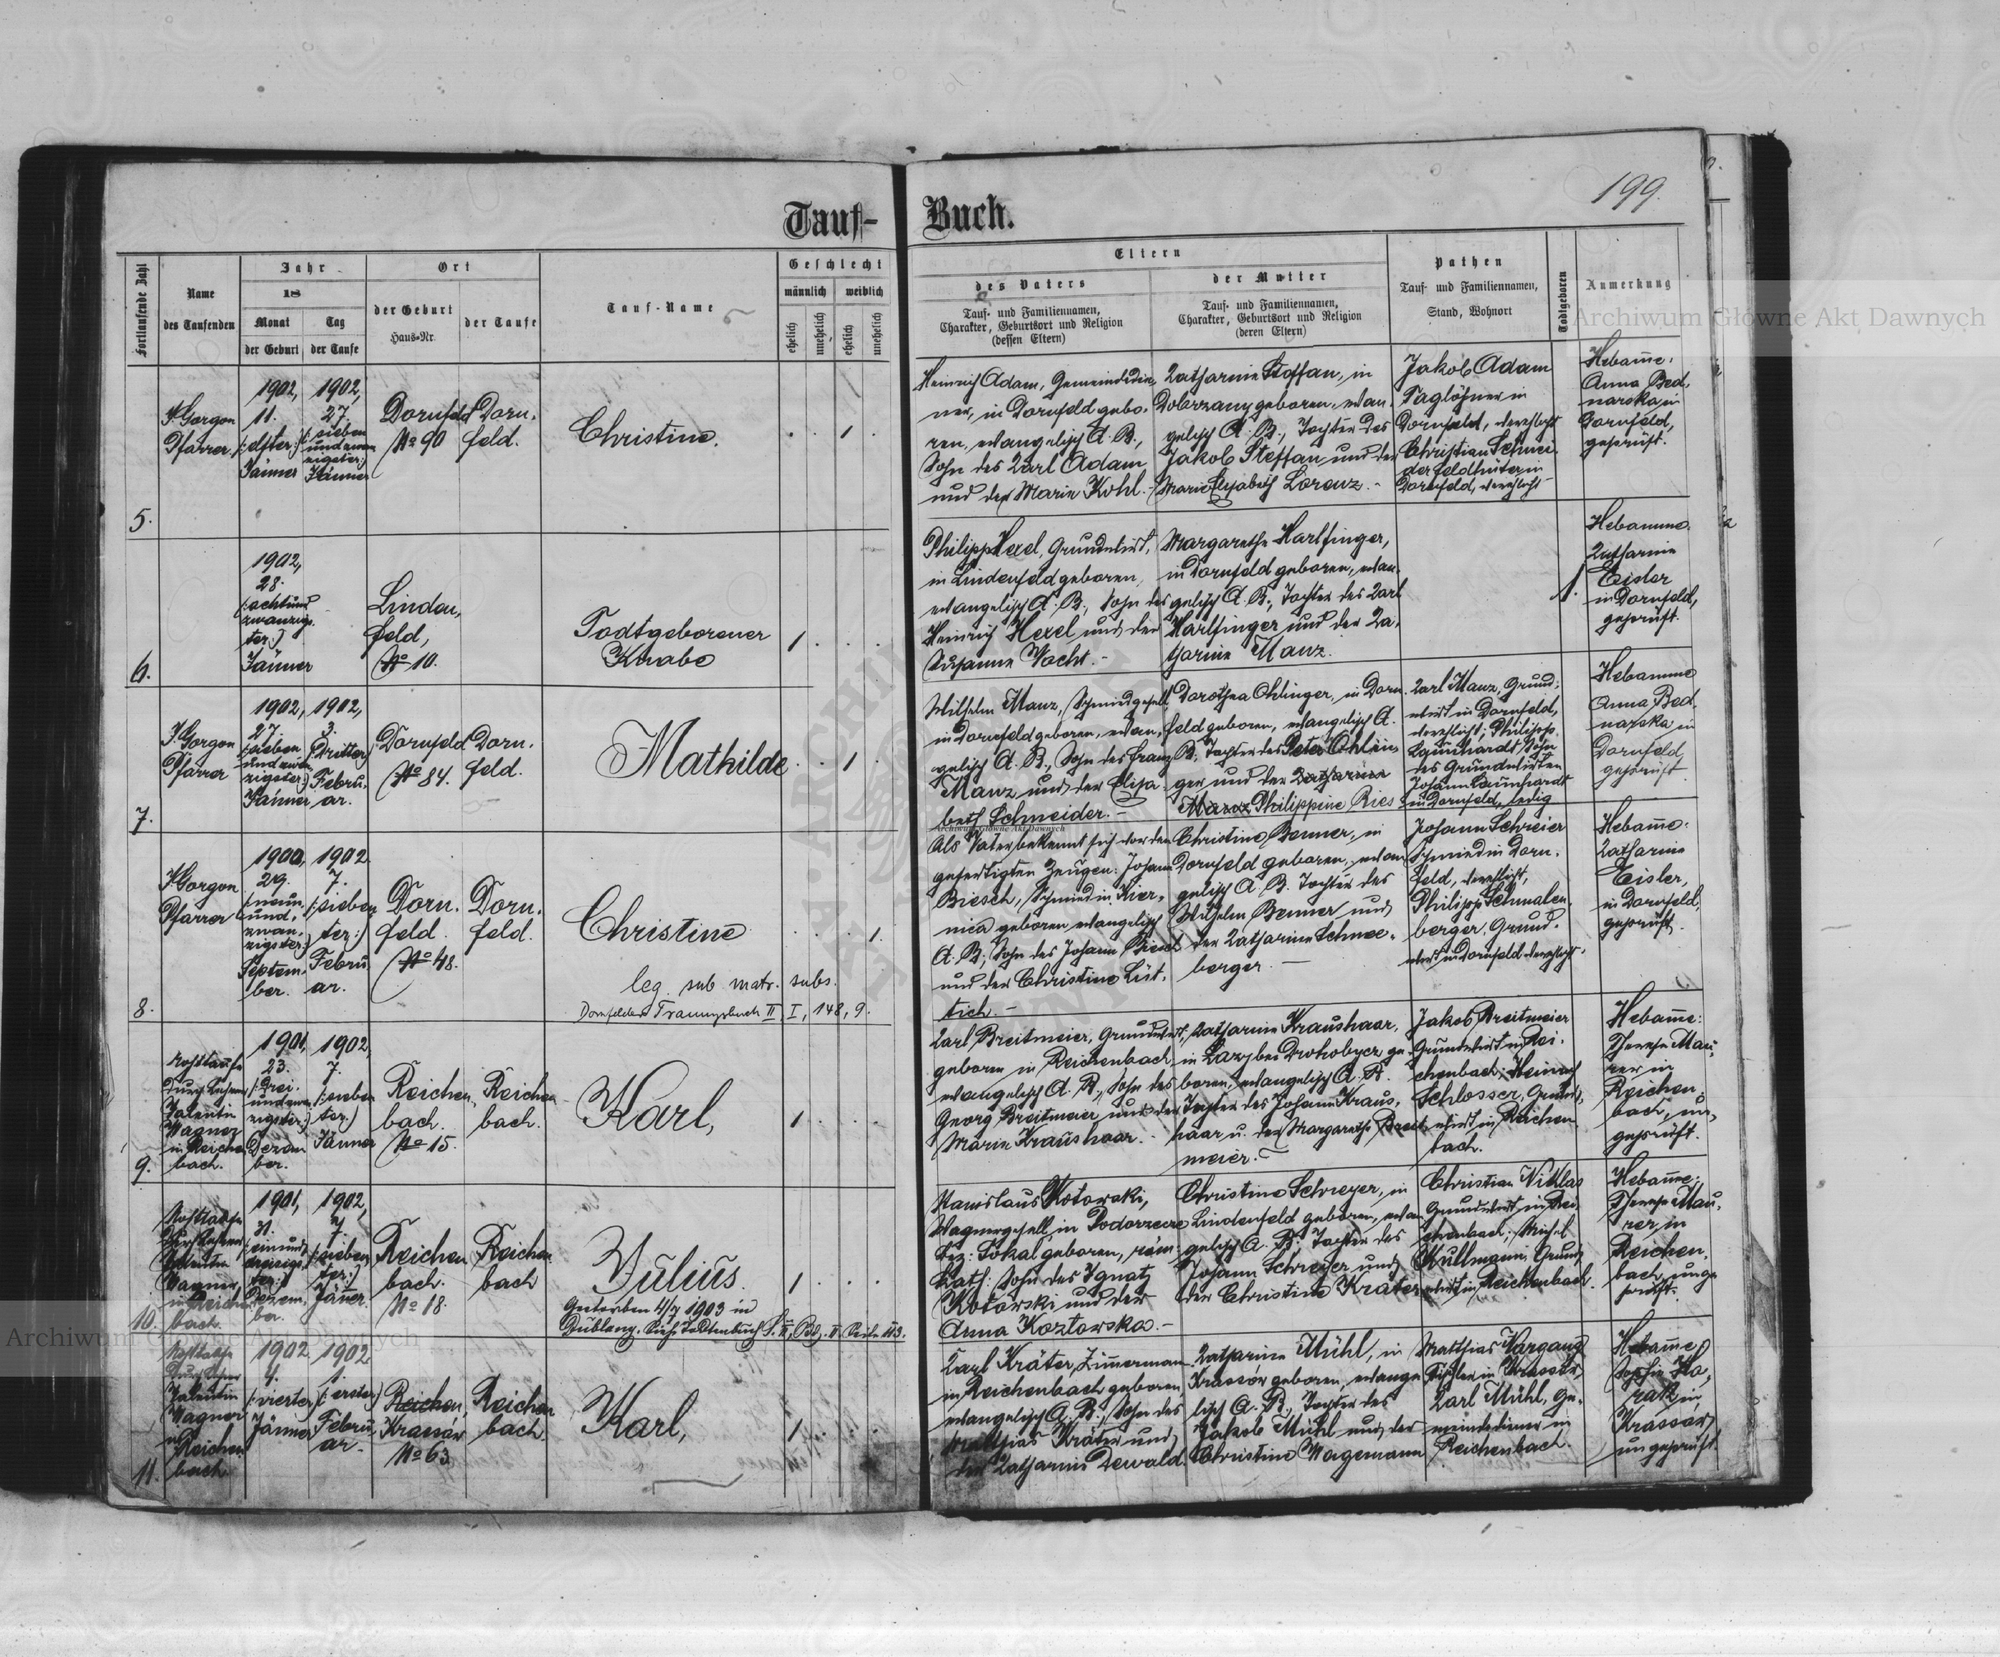 199.
Tauf-Buch.
Fortlaufende Zahl
Name
des Taufenden
Jahr
18
Monat
der Geburt
Tag
der Taufe
Ort
der Geburt
Haus-Nr.
der Taufe
Tauf-Name
Geschlecht
männlich
weiblich
ehelich
unehelich
ehelich
unehelich
Eltern
des Vaters
Tauf- und Familiennamen,
Charakter, Geburtsort und Religion
(dessen Eltern)
der Mutter
Tauf- und Familiennamen,
Charakter, Geburtsort und Religion
(deren Eltern)
Pathen
Tauf- und Familiennamen,
Stand, Wohnort
Todtgeboren
Anmerkung
5.
Gorgon
Pfarrer
1902,
11.
(:elfter:)
Jänner
1902,
27.
(:sieben
undzwan
zigster:)
Jänner
Dornfeld
No 90
Dorn-
feld.
Christine.
1
Heinrich Adam, Gemeindedie-
ner, in Dornfeld gebo-
ren, evangelisch A. B.,
Sohn des Karl Adam
und der Marie Kohl.-
Katharine Steffan, in
Dobrzany geboren, evan-
gelisch A. B., Tochter des
Jakob Steffan und der
Marie Elisabeth Lorenz.-
Jakob Adam
Taglöhner in
Dornfeld, verehlicht
Christian Schnei-
der Feldhüter in
Dornfeld, verehlicht-
Hebame:
Anna Bed-
narska in
Dornfeld,
geprüft.
6.
1902,
28.
(:achtund
zwanzigs-
ter:)
Jänner
Linden-
feld,
No 10.
Todtgeborener
Knabe
1
Philipp Hexel, Grundwirt,
in Lindenfeld geboren,
evangelisch A. B., Sohn des
Heinrich Hexel und der
Susanne Wacht.-
Margarethe Harlfinger,
in Dornfeld geboren, evan-
gelisch A. B., Tochter des Karl
Harlfinger und der Ka-
tharine Manz.
1.
Hebamme
Katharine
Eisler
in Dornfeld,
geprüft.
7.
Gorgon
Pfarrer
1902,
27.
(:sieben
undzwan
zigster:)
Jänner
1902,
3.
(Dritter)
Febru-
ar.
Dornfeld
No 84.
Dorn-
feld.
Mathilde
1
Wilhelm Manz, Schmiedgesell,
in Dornfeld geboren, evan-
gelisch A. B., Sohn des Franz
Manz und der Elisa-
beth Schneider.-
Dorothea Ohlinger, in Dorn-
feld geboren, evangelisch A.
B., Tochter des Peter Ohlin-
ger und der Katharine
Manz Philippine Ries
Karl Manz, Grund-
wirt in Dornfeld,
verehlicht; Philipp
Launhardt Sohn
des Grundwirten
Johann Launhardt
in Dornfeld, ledig
Hebamme
Anna Bed-
narska in
Dornfeld
geprüft
8.
Gorgon
Pfarrer
1900,
29.
(:neun
und-
zwan-
zigster:)
Septem-
ber.
1902
7.
(:sieben
ter:)
Febru-
ar.
Dorn-
feld.
No 48.
Dorn-
feld.
Christine
leg. sub. matr. subs.
Dornfelder Trauungsbuch II, I, 148, 9.
1
Als Vater bekennt sich vor den
gefertigten Zeugen: Johann
Biesch, Schmied in Kier-
nica geboren evangelisch
A. B., Sohn des Johann Biesch
und der Christine Lüt-
tich.-
Christine Benner, in
Dornfeld geboren, evan
gelisch A. B. Tochter des
Wilhelm Benner und
der Katharine Schnee-
berger.
Johann Schreier
Schmied in Dorn-
feld, verehlicht,
Philipp Schmalen-
berger, Grund-
wirt in Dornfeld verehlicht.
Hebame:
Katharine
Eisler,
in Dornfeld,
geprüft.
9.
Nothtaufe
durch Lehrer
Valentin
Wagner
in Reichen
bach.
1901,
23.
(:drei-
undzwan
zigster:)
Dezem
ber.
1902,
7.
(:sieben
ter:)
Jänner
Reichen-
bach.
No 15.
Reichen
bach.
Karl,
1
Karl Breitmeier, Grundwirt,
geboren in Reichenbach
evangelisch A. B., Sohn des
Georg Breitmeier und der
Marie Kraushaar.-
Katharine Kraushaar,
in Lazy bei Drohobycz ge-
boren, evangelisch A. B.
Tochter des Johann Kraus-
haar u. der Margarethe Breit
meier.-
Jakob Breitmeier
Grundwirt in Rei-
chenbach; Heinrich
Schlosser, Grund-
wirt in Reichen
bach.
Hebame:
Therese Mau-
rer in
Reichen-
bach, un-
geprüft.
10.
Nothtaufe
durch Lehrer
Valentin
Wagner
in Reichen
bach.
1901,
31.
(:einund
dreissigs-
ter:)
Dezem-
ber.
1902,
7.
(:sieben
ter:)
Jäner.
Reichen
bach.
No 18.
Reichen
bach
Julius
Gestorben 4/7 1903 in
Dublany. Sieh Todtenbuch
1
Stanislaus Kotowski,
Wagnergesell, in
Bez: Sokal geboren, röm:
Kath: Sohn des Ignatz
Kotowski und der
Anna Kozłowska.-
Christine Schreyer, in
Lindenfeld geboren, evan
gelisch A. B. Tochter des
Johann Schreyer und
der Christine Kräter
Christian Niklas
Grundwirt in Rei-
chenbach; Michel
Kullmann, Grund-
wirt in Reichenbach.
Hebame:
Therese Mau-
rer, in
Reichen-
bach, unge
prüft.
11.
Nothtaufe
durch Lehrer
Valentin
Wagner
in
Reichen
bach
1902
4.
(:vierter)
Jänner
1902
1.
(:erster)
Febru-
ar.
Reichen-
Krassów
No 63
Reichen
bach
Karl,
1
Karl Kräter, Zimermann
in Reichenbach geboren
evangelisch A. B., Sohn des
Matthias Kräter und
der Katharine Dewald.
Katharine Mühl, in
Krassów geboren, evange
lisch A. B., Tochter des
Jakob Mühl und der
Christine Wagemann
Matthias Kargang
Tischler in Krassów,
Karl Mühl, Ge-
meindediener in
Reichenbach.
Hebame
Krassów
ungeprüft
Archiwum Główne Akt Dawnych
Archiwum Główne Akt Dawnych
Archiwum Główne Akt Dawnych